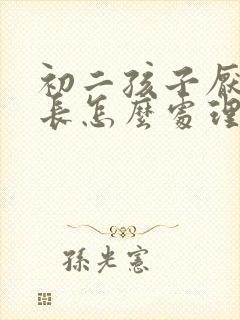 初二孩子厭
長怎麼處理
孫光憲